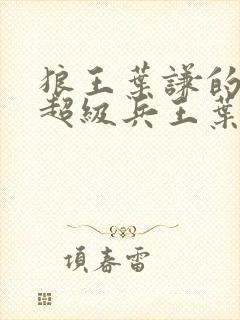 狼王葉謙的
超級兵王葉
項春雷